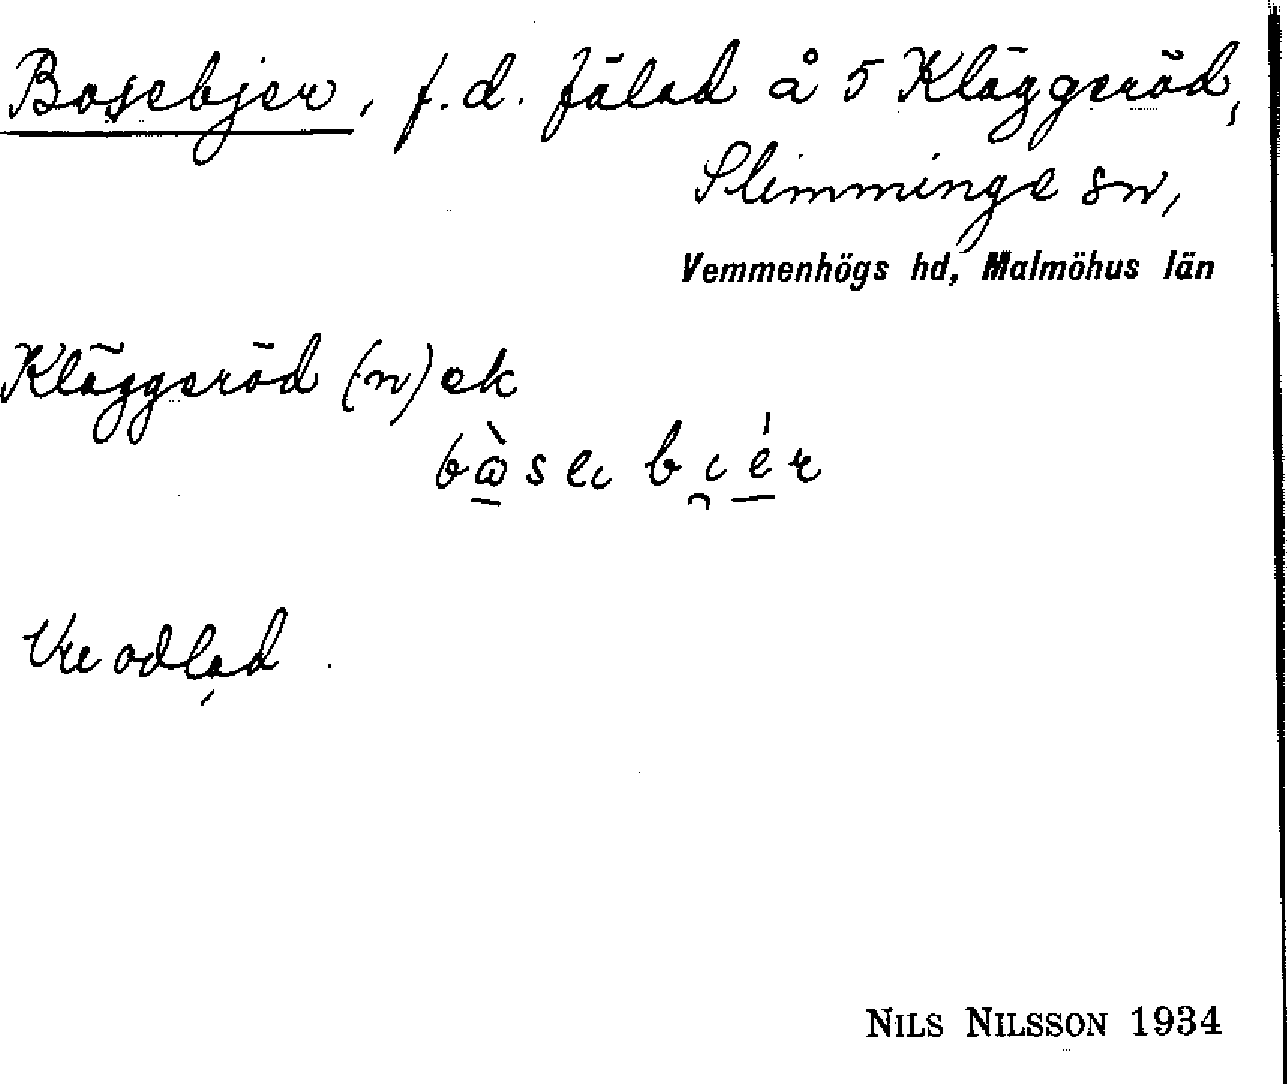 Bosebjer, f.d. fälad å 5 Kläggeröd,
Slimminge sn,
Vemmenhögs hd, Malmöhus län
Kläggeröd (n) ek
Uppodlad.
NILS NILSSON 1934